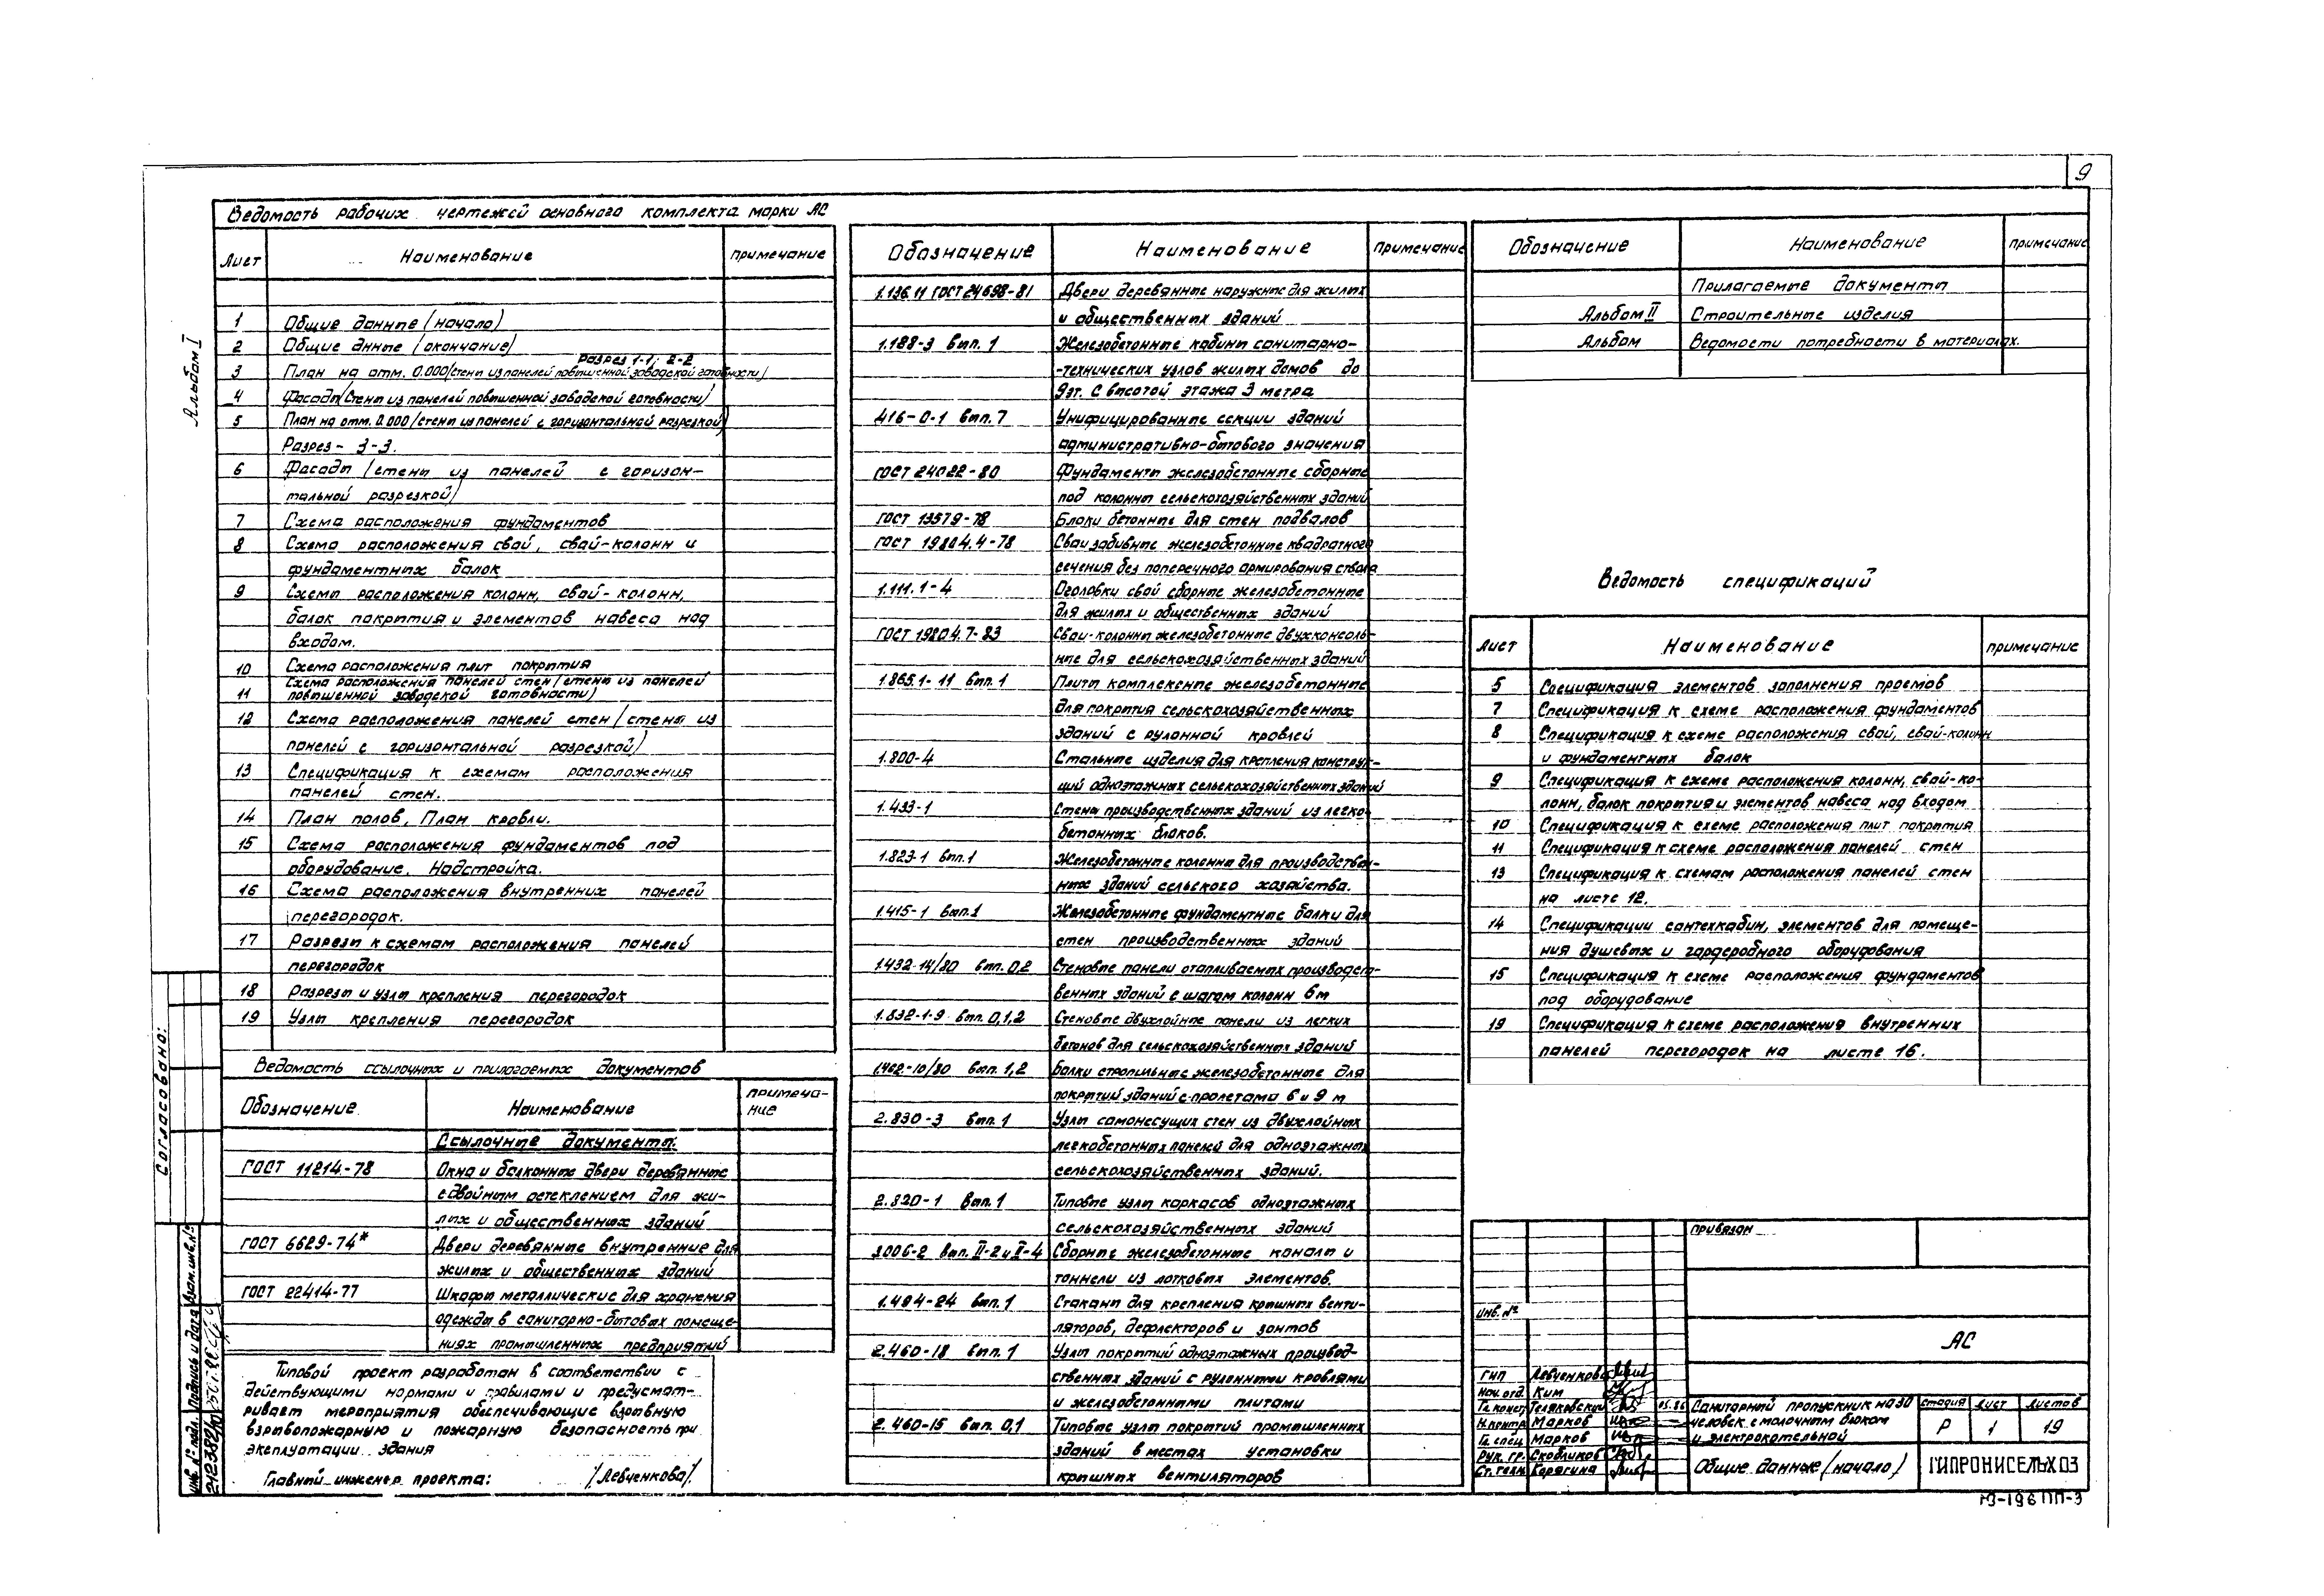 9
Альбом I
Ведомость рабочих чертежей основного комплекта марки АС
Лист Наименование примечание
1 Общие данные (начало)
2 Общие днные (окончание)
Разрез 1-1; 2-2
3 План на отм. 0.000 (стены из панелей повышенной заводской готовности)
4 Фасады (стены из панелей повышенной заводской готовности)
5 План на отм. 0.000 (стены из панелей с горизонтальной разрезкой)
Разрез - 3-3.
6 Фасады (стены из панелей с горизон-
тальной разрезкой)
7 Схема расположения фундаментов
8 Схема расположения свай, свай-колонн и
фундаментных балок
9 Схемы расположения колонн, свай-колонн,
балок покрытия и элементов навеса над
входом.
10 Схема расположения плит покрытия
Схема расположения панелей стен (стены из панелей
11 повышенной заводской готовности)
12 Схема расположения панелей стен (стены из
панелей с горизонтальной разрезкой)
13 Спецификация к схемам расположения
панелей стен.
14 План полов, План кровли.
15 Схема расположения фундаментов под
оборудование. Надстройка.
16 Схема расположения внутренних панелей
перегородок.
17 Разрезы к схемам расположения панелей
перегородок
18 Разрезы и узлы крепления перегородок
19 Узлы крепления перегородок
Ведомость ссылочных и прилагаемых документов
Обозначение Наименование примеча-
ние
Ссылочные документы.
ГОСТ 11214-78 Окна и балконные двери деревянные
с двойным остеклением для жи-
лых и общественных зданий
ГОСТ 6629-74* Двери деревянные внутренние для
жилых и общественных зданий
ГОСТ 22414-77 Шкафы металлические для хранения
одежды в санитарно-бытовых помеще-
ниях промышленных предприятий
Типовой проект разработан в соответствии с
действующими нормами и правилами и предусмат-
ривает мероприятия обеспечивающие взрывную
взрывопожарную и пожарную безопасность при
эксплуатации здания
Главный инженер проекта: /Левченкова/
Обозначение Наименование примечание
1.136.11 ГОСТ 24698-81 Двери деревянные наружные для жилых
и общественных зданий
1.188-3 вып. 1 Железобетонные кабины санитарно-
-технических узлов жилых домов до
9эт. с высотой этажа 3 метра
416-0-1 вып. 7 Унифицированные секции зданий
административно-бытового значения
ГОСТ 24022-80 Фундаменты железобетонные сборные
под колонны сельскохозяйственных зданий
ГОСТ 13579-78 Блоки бетонные для стен подвалов
ГОСТ 19804.4-78 Сваи забивные железобетонные квадратного
сечения без поперечного армирования ствола
1.111.1-4 Оголовки свай сборные железобетонные
для жилых и общественных зданий
ГОСТ 19804.7-83 Сваи-колонны железобетонные двухконсоль-
ные для сельскохозяйственных зданий
1.865.1-11 вып. 1 Плиты комплексные железобетонные
для покрытия сельскохозяйственных
зданий с рулонной кровлей
1.800-4 Стальные изделия для крепления конструк-
ций одноэтажных сельскохозяйственных зданий
1.433-1 Стены производственных зданий из легко-
бетонных блоков.
1.823-1 вып.1 Железобетонные колонны для производствен-
ных зданий сельского хозяйства.
1.415-1 вып.1 Железобетонные фундаментные балки для
стен производственных зданий
1.432-14/80 вып. 0,2 Стеновые панели отапливаемых производст-
венных зданий с шагом колонн 6м
1.832-1-9 вып. 0,1,2 Стеновые двухслойные панели из легких
бетонов для сельскохозяйственных зданий
1.462-10/80 вып. 1,2 Балки стропильные железобетонные для
покрытий зданий с пролетами 6 и 9 м
2.830-3 вып. 1 Узлы самонесущих стен из двухслойных
легкобетонных панелей для одноэтажных
сельскохозяйственных зданий.
2.820-1 вып. 1 Типовые узлы каркасов одноэтажных
сельскохозяйственных зданий
3.006-2 вып. II-2 и II-4 Сборные железобетонные каналы и
тоннели из лотковых элементов.
1.494-24 вып. 1 Стаканы для крепления крышных венти-
ляторов, дефлекторов и зонтов
2.460-18 вып. 1 Узлы покрытий одноэтажных производ-
ственных зданий с рулонными кровлями
и железобетонными плитами
2.460-15 вып. 0,1 Типовые узлы покрытий промышленных
зданий в местах установки
крышных вентиляторов
Обозначение Наименование примечание
Прилагаемые документы
Альбом II Строительные изделия
Альбом Ведомости потребности в материалах.
Ведомость спецификаций
Лист Наименование примечание
5 Спецификация элементов заполнения проемов
7 Спецификация к схеме расположения фундаментов
8 Спецификация к схеме расположения свай, свай-колонн
и фундаментных балок
9 Спецификация к схеме расположения колонн, свай-ко-
лонн, балок покрытия и элементов навеса над входом
10 Спецификация к схеме расположения плит покрытия
11 Спецификация к схеме расположения панелей стен
13 Спецификация к схемам расположения панелей стен
на листе 12.
14 Спецификации сантехкабин, элементов для помеще-
ния душевых и гардеробного оборудования
15 Спецификация к схеме расположения фундаментов
под оборудование
19 Спецификация к схеме расположения внутренних
панелей перегородок на листе 16.
привязан
инв. №
АС
ГИП Левченкова
Нач. отд. Ким
Гл. конст. Теляковский 05.86
Н.контр. Марков
Гл. спец. Марков
Рук. гр. Скобликов
Ст. техн. Корягина
Санитарный пропускник на 30
человек с молочным блоком
и электрокотельной
стадия лист листов
Р 1 19
Общие данные (начало)
ГИПРОНИСЕЛЬХОЗ
Согласовано:
инв. № подл. Подпись и дата Взам.инв.№